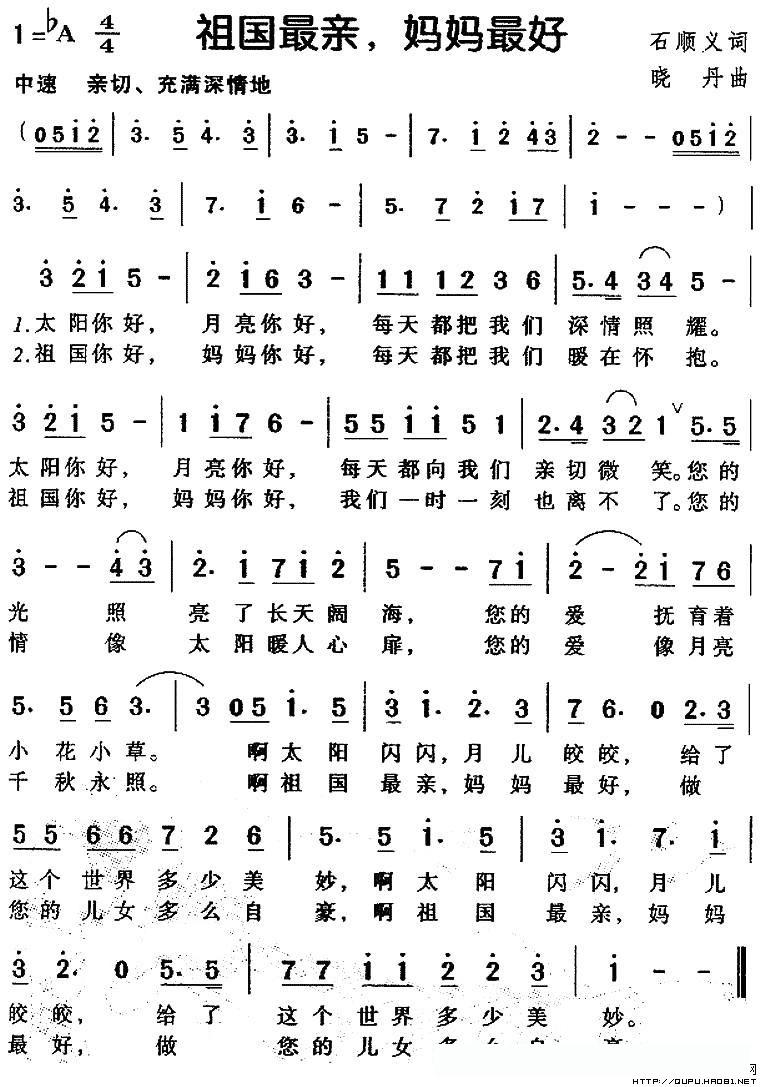 祖国最亲，妈妈最好
1=♭A 4/4
石顺义词
晓 丹曲
中速 亲切、充满深情地
(0512 | 3. 5 4. 3 | 3. 1 5 - | 7. 1 2 43 | 2 - - 0512 |
3. 5 4. 3 | 7. 1 6 - | 5. 7 2 17 | 1 - - - ) |
3 21 5 - | 2 16 3 - | 11 12 3 6 | 5.4 34 5 - |
1.太阳你好，月亮你好，每天都把我们深情照耀。
2.祖国你好，妈妈你好，每天都把我们暖在怀抱。
3 21 5 - | 1 17 6 - | 55 11 5 1 | 2.4 32 1 ∨ 5.5 |
太阳你好，月亮你好，每天都向我们亲切微笑。您的
祖国你好，妈妈你好，我们一时一刻也离不了。您的
3 - - 43 | 2. 1 71 2 | 5 - - 71 | 2 - 21 76 |
光照亮了长天阔海，您的爱抚育着
情像太阳暖人心扉，您的爱像月亮
5. 5 6 3. | 3 05 1. 5 | 3 1. 2. 3 | 7 6. 0 2.3 |
小花小草。啊太阳闪闪，月儿皎皎，给了
千秋永照。啊祖国最亲，妈妈最好，做
55 66 7 2 6 | 5. 5 1. 5 | 3 1. 7. 1 |
这个世界多少美妙，啊太阳闪闪，月儿
您的儿女多么自豪，啊祖国最亲，妈妈
3 2. 0 5.5 | 77 11 2 2 3 | 1 - - ‖
皎皎，给了这个世界多少美妙。
最好，做您的儿女多么自
网
HTTP://QUPU.HAO81.NET